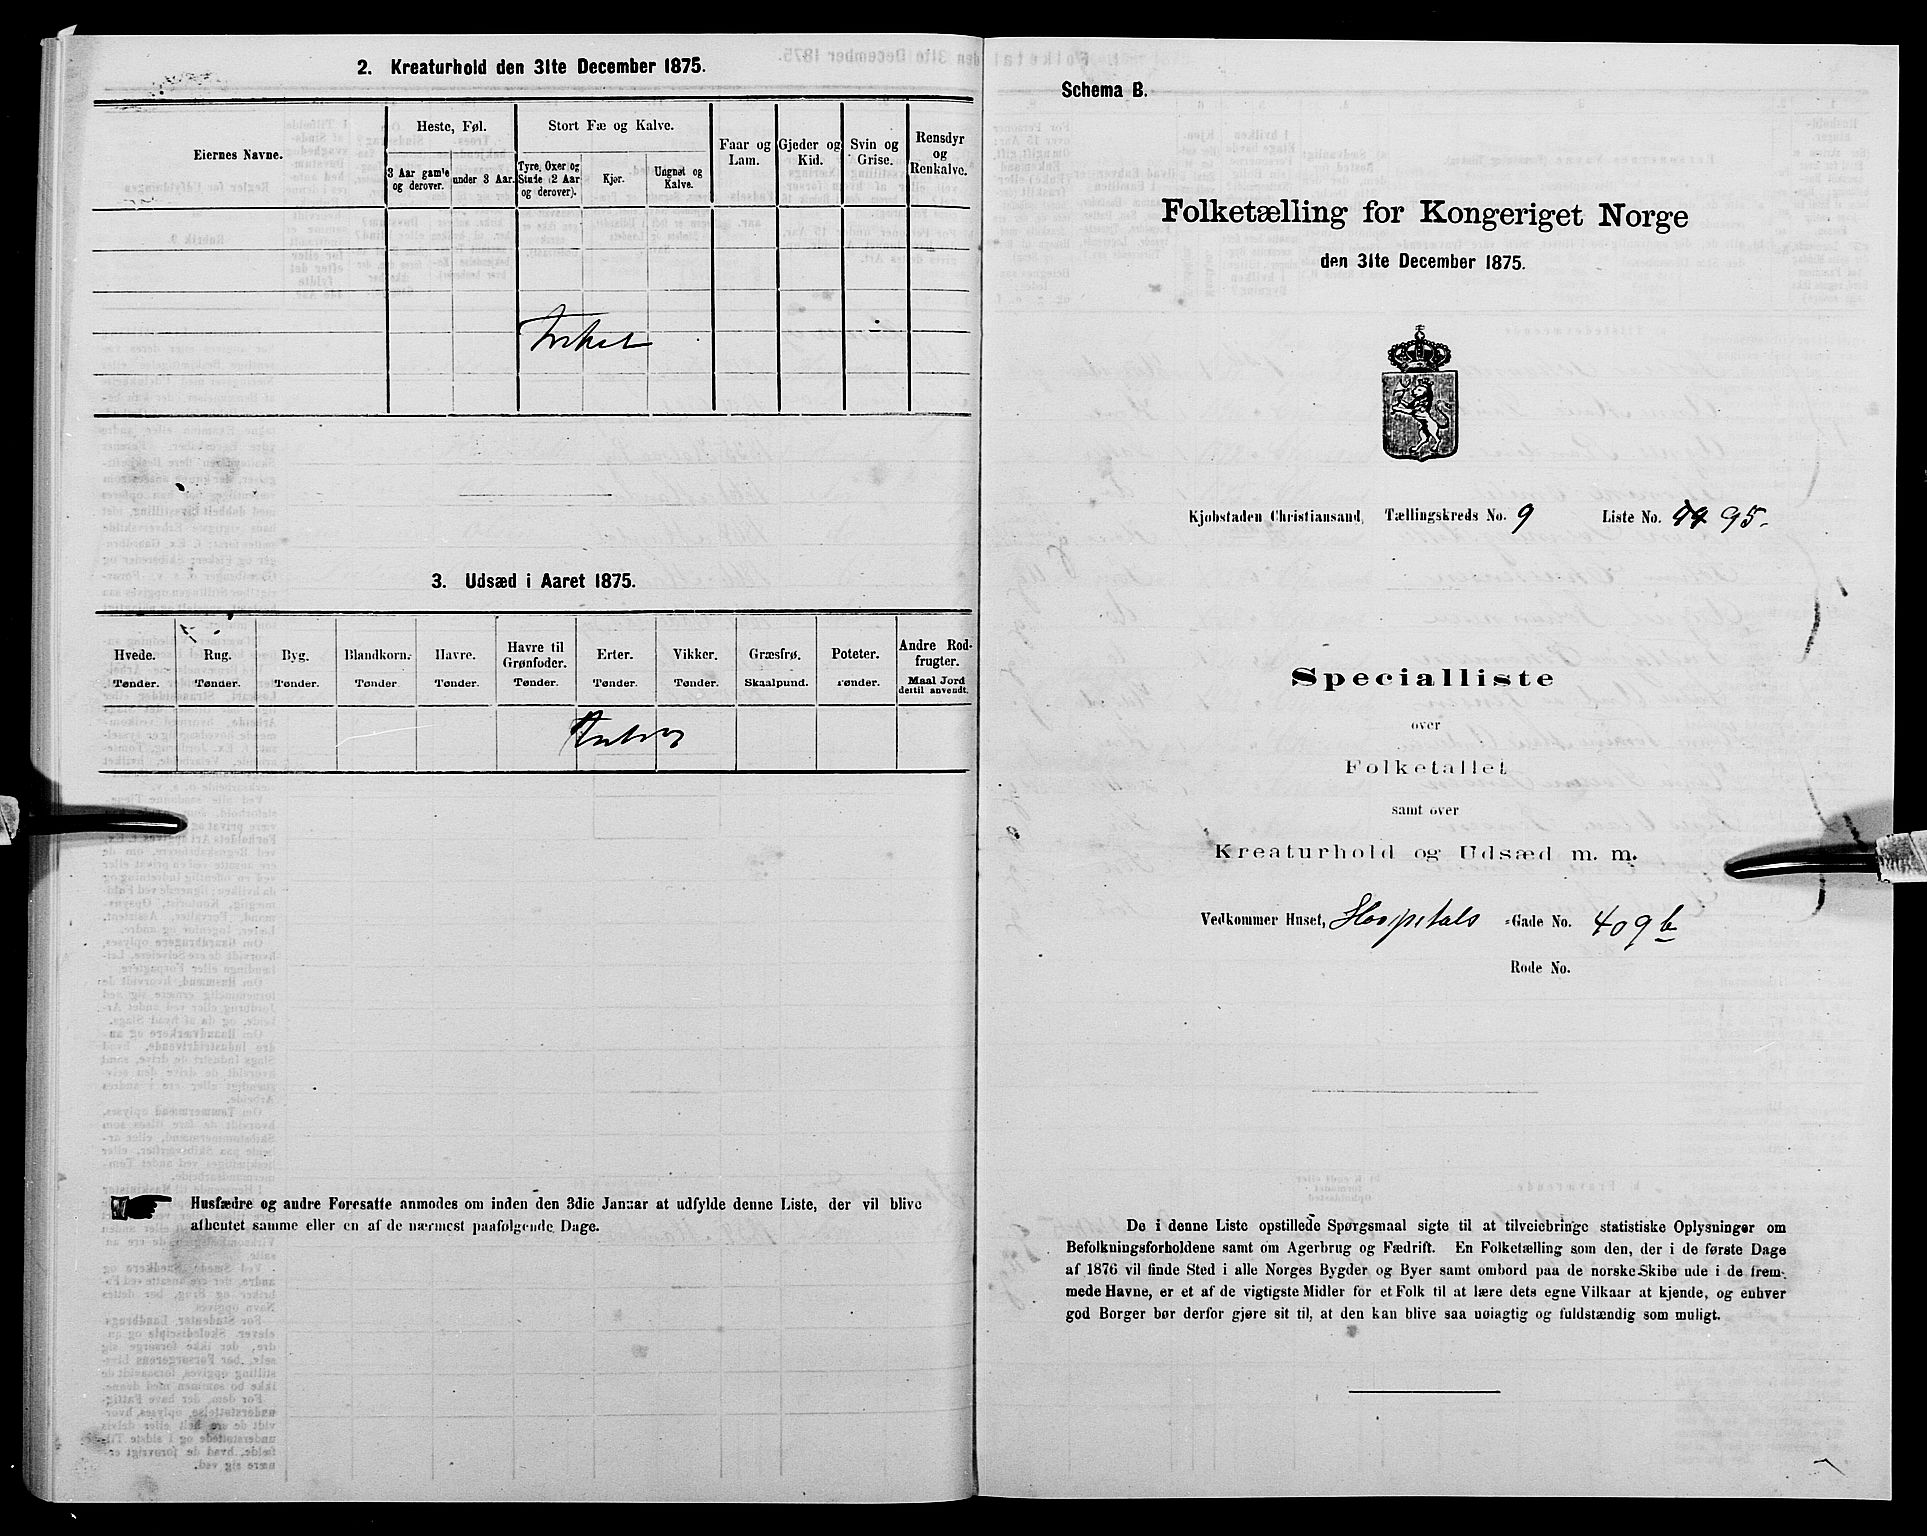 2. Kreaturhold den 31te December 1875.
Eiernes Navne.
Heste, Føl.
3 Aar gamle og derover.
under 3 Aar.
Stort Fæ og Kalve.
Tyre, Oxer og Stude (2 Aar og derover).
Kjør.
Ungnøt og Kalve.
Faar og Lam.
Gjeder og Kid.
Svin og Grise.
Rensdyr og Renkalve.
3. Udsæd i Aaret 1875.
Hvede. Tønder.
Rug. Tønder.
Byg. Tønder.
Blandkorn. Tønder
Havre. Tønder.
Havre til Grønfoder. Tønder.
Erter. Tønder.
Vikker. Tønder.
Græsfrø. Skaalpund.
Poteter. Tønder.
Andre Rodfrugter. Maal Jord dertil anvendt.
Husfædre og andre Foresatte anmodes om inden den 3die Januar at udfylde denne Liste, der vil blive
afhentet samme eller en af de nærmest paafølgende Dage.
Schema B.
Folketælling for Kongeriget Norge
den 31te December 1875.
Kjøbstaden Christiansand, Tællingskreds No. 9 Liste No. 95.
Specialliste
over
Folketallet
samt over
Kreaturhold og Udsæd m. m.
Vedkommer Huset, Hospitals -Gade No. 409b
Rode No.
De i denne Liste opstillede Spørgsmaal sigte til at tilveiebringe statistiske Oplysninger om
Befolkningsforholdene samt om Agerbrug og Fædrift. En Folketælling som den, der i de første Dage
af 1876 vil finde Sted i alle Norges Bygder og Byer samt ombord paa de norske Skibe ude i de frem-
mede Havne, er et af de vigtigste Midler for et Folk til at lære dets egne Vilkaar at kjende, og enhver
god Borger bør derfor gjøre sit til, at den kan blive saa nøiagtig og fuldstændig som muligt.